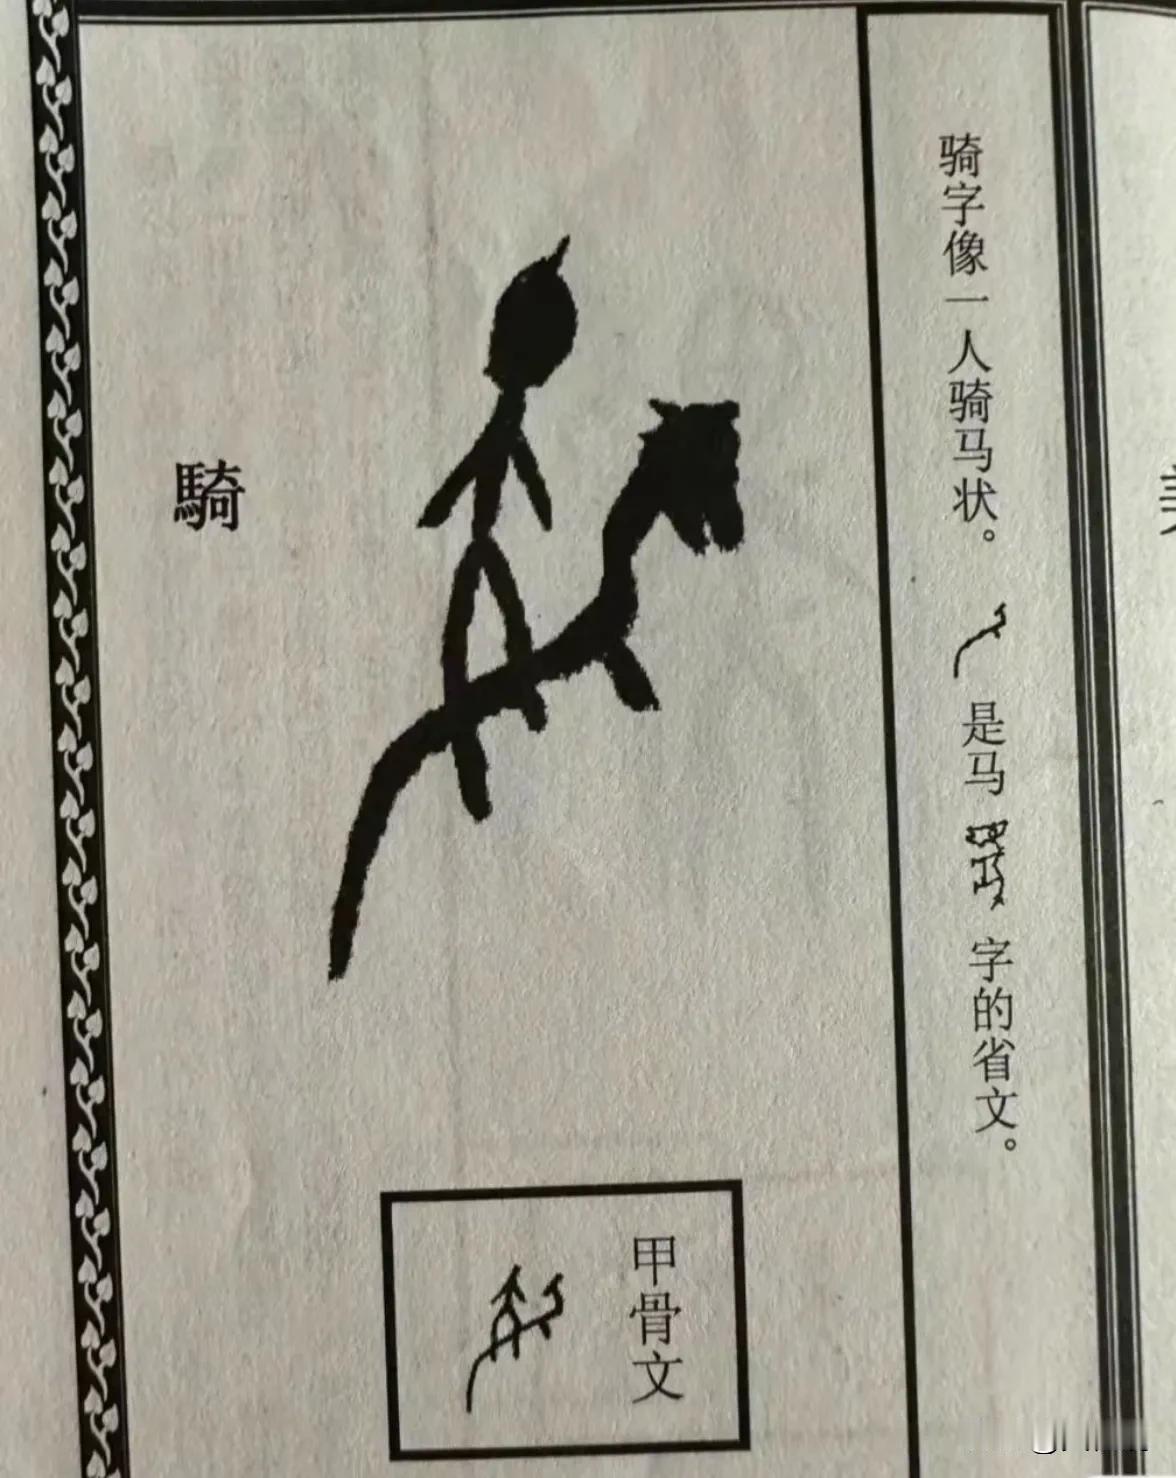 骑字像一人骑马状。
是马
字的省文。
騎
甲骨文